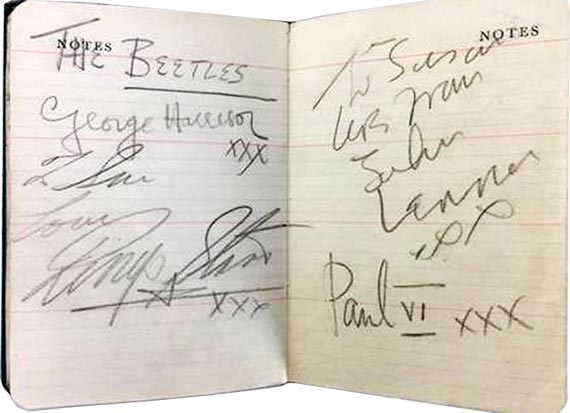 NOTES
THE BEETLES
George Harrison
XXX
To Sue
Love
Ringo Starr
XXX
NOTES
To Susan
love from
John
Lennon
XX
Paul VI XXX